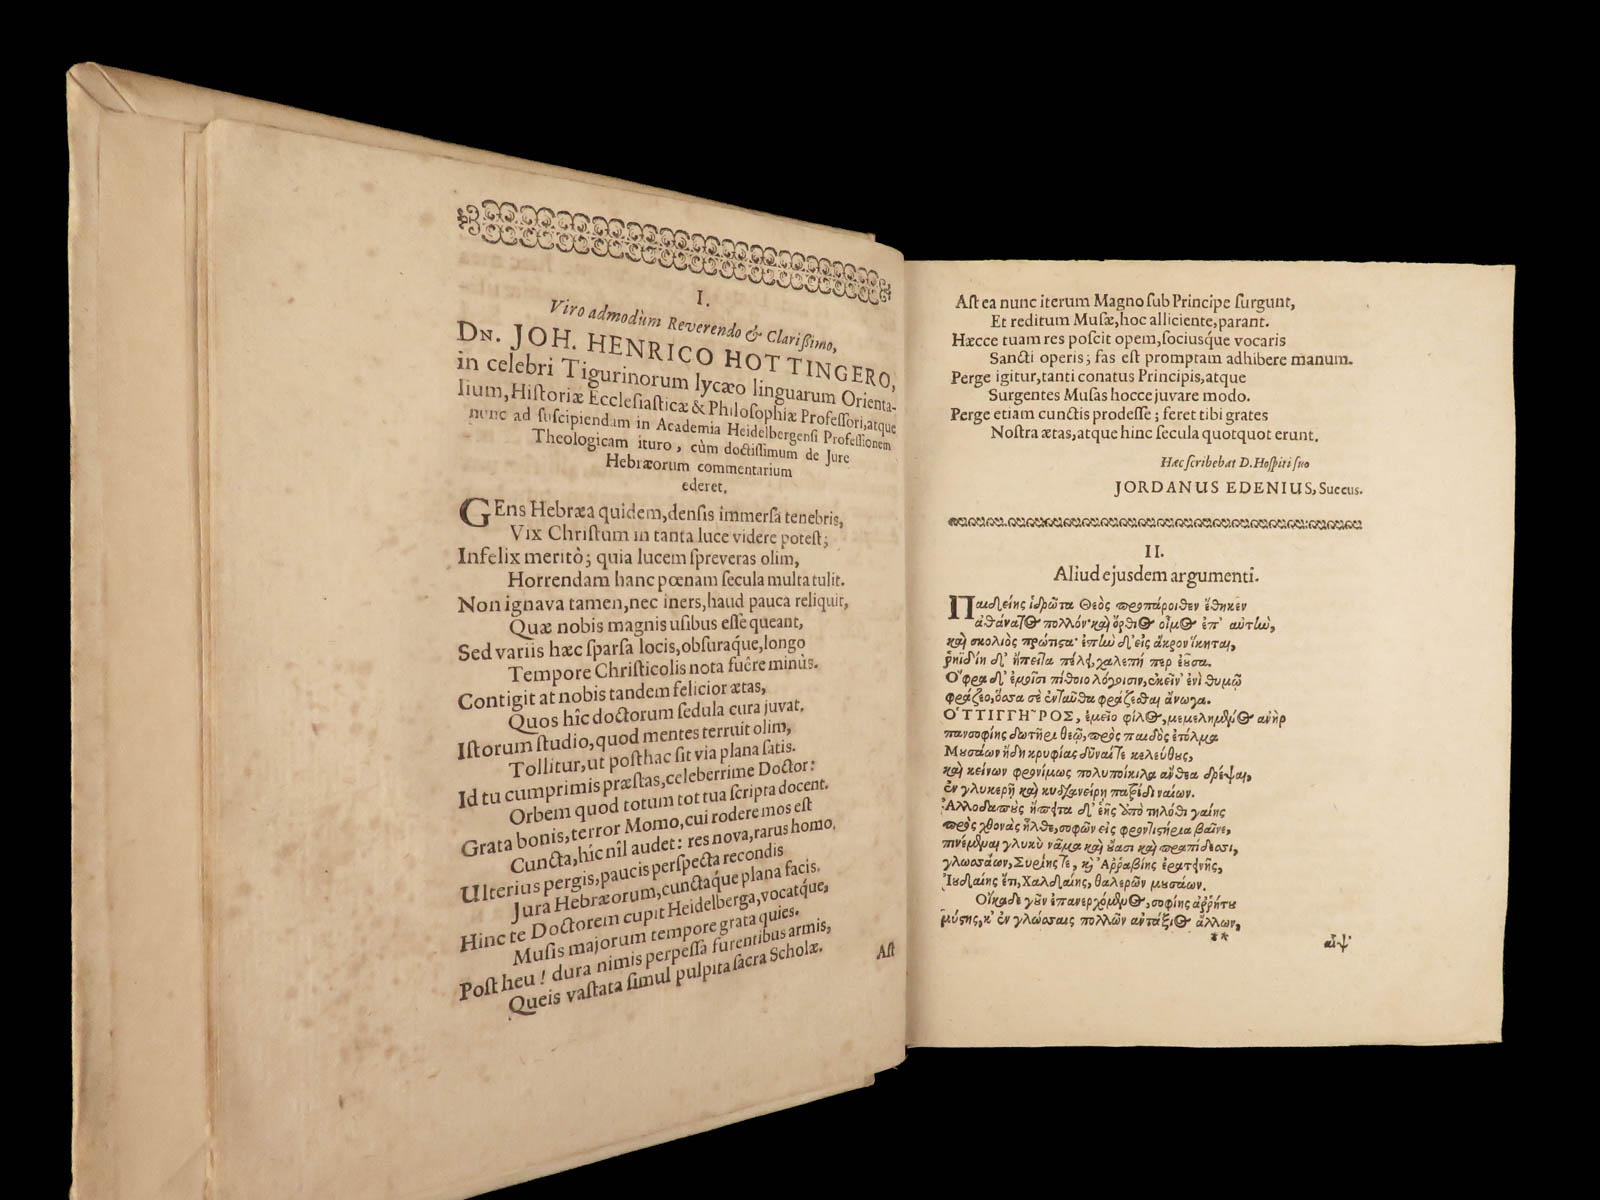 I.
Viro admodùm Reverendo & Clarißimo,
DN. JOH. HENRICO HOTTINGERO,
in celebri Tigurinorum lycæo linguarum Orienta-
lium, Hiſtoriæ Eccleſiaſticæ & Philoſophiæ Profeſſori, atque
nunc ad ſuſcipiendam in Academia Heidelbergenſi Profeſſionem
Theologicam ituro, cùm doctiſſimum de Jure
Hebræorum commentarium
ederet,
GEns Hebræa quidem, denſis immerſa tenebris,
Vix Chriſtum in tanta luce videre poteſt;
Infelix meritò; quia lucem ſpreveras olim,
Horrendam hanc pœnam ſecula multa tulit.
Non ignava tamen, nec iners, haud pauca reliquit,
Quæ nobis magnis uſibus eſſe queant,
Sed variis hæc ſparſa locis, obſuraq́ue, longo
Tempore Chriſticolis nota fuêre minùs.
Contigit at nobis tandem felicior ætas,
Quos hîc doctorum ſedula cura juvat,
Iſtorum ſtudio, quod mentes terruit olim,
Tollitur, ut poſthac ſit via plana ſatis.
Id tu cumprimis præſtas, celeberrime Doctor:
Orbem quod totum tot tua ſcripta docent.
Grata bonis, terror Momo, cui rodere mos eſt
Cuncta, hîc nîl audet: res nova, rarus homo,
Ulterius pergis, paucis perſpecta recondis
Jura Hebræorum, cunctaq́ue plana facis.
Hinc te Doctorem cupit Heidelberga, vocatq́ue,
Muſis majorum tempore grata quies.
Poſt heu! dura nimis perpeſſa furentibus armis,
Queis vaſtata ſimul pulpita ſacra Scholæ.
Aſt
Aſt ea nunc iterum Magno ſub Principe ſurgunt,
Et reditum Muſæ, hoc alliciente, parant.
Hæcce tuam res poſcit opem, ſociusq́ue vocaris
Sancti operis; fas eſt promptam adhibere manum.
Perge igitur, tanti conatus Principis, atque
Surgentes Muſas hocce juvare modo.
Perge etiam cunctis prodeſſe; feret tibi grates
Noſtra ætas, atque hinc ſecula quotquot erunt.
Hæc ſcribebat D. Hoſpiti ſuo
JORDANUS EDENIUS, Suecus.
II.
Aliud ejusdem argumenti.
Παιδείης ἱδρῶτα Θεὸς προπάροιθεν ἔθηκεν
ἀθάνατος πολλόν· καὶ ὄρθιος οἶμος ἐπ' αὐτὼ,
καὶ σκολιὸς πρώτιςα· ἐπὼ δ' εἰς ἄκρον ἵκηται,
ῥηϊδίη δ' ἤπειτα πέλει, χαλεπή περ ἐοῦσα.
Ὄφρα δ' ἐμοῖσι πίθοιο λόγοισιν, ἐνὶ θυμῷ
φράζεο, ὅσσα σὲ ἐνταῦθα φράζεσθαι ἄνωγα.
ὉΤΤΙΓΓΗ͂ΡΟΣ, ἐμεῖο φίλος, μεμελημένος ἀνὴρ
πανσοφίης δωτῆρι θεῷ, πρὸς παιδὸς ἐτόλμα
Μουσάων ἤδη κρυφίας δύναί τε κελεύθους,
καὶ κείνων φρονίμως πολυποίκιλα ἄνθεα δρέψαι,
ἐν γλυκερῇ καὶ κυδιανείρῃ παξίδι ναίων.
Ἀλλοδαποὺς ἤπειτα δ' ἑῆς ἀπὸ τηλόθι γαίης
πρὸς χθονὰς ἦλθε, σοφῶν εἰς φροντιςήρια βαῖνε,
πινέμεναι γλυκὺ νᾶμα καὶ οὔασι καὶ πραπίδεσσι,
γλωσσάων, Συρίης τε, κỳ Ἀῤῥαβίης ἐρατεινῆς,
Ἰουδαίης ἔτι, Χαλδαίης, θαλερῶν μουσάων.
Οἴκαδε γοῦν ἐπανερχόμενος, σοφίης ἀῤῥήτου
μύςης, κ' ἐν γλώσσαις πολλῶν ἀντάξιος ἄλλων,
**
αἶψ'